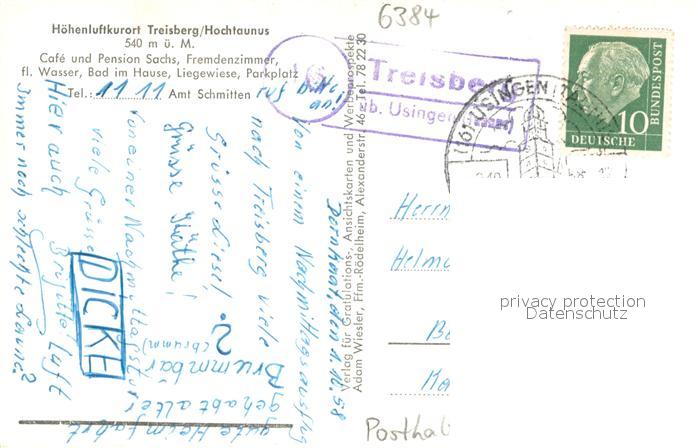 6384
Höhenluftkurort Treisberg/Hochtaunus
540 m ü. M.
Café und Pension Sachs, Fremdenzimmer,
fl. Wasser, Bad im Hause, Liegewiese, Parkplatz
Tel.: 11 11 Amt Schmitten
16
Treisberg
USINGEN (TAUNUS)
10
DEUTSCHE
BUNDESPOST
den 1.10.58
Von einem Nachmittagsausflug
nach Treisberg viele
Grüsse Liesel.
Grüsse Käthe!
Brummbär
(brumm)
gehabt alter
gute Heimfahrt
von einer Nachmittagstour
viele Grüsse
Brigitte
DICKE
Hier auch Luft
Immer noch schlechte Laune?
Verlag für Gratulations-, Ansichtskarten und Werbeprospekte
Adam Wiesler, Ffm.-Rödelheim, Alexanderstr. 46a - Tel. 78 22 30
Herrn
privacy protection
Datenschutz